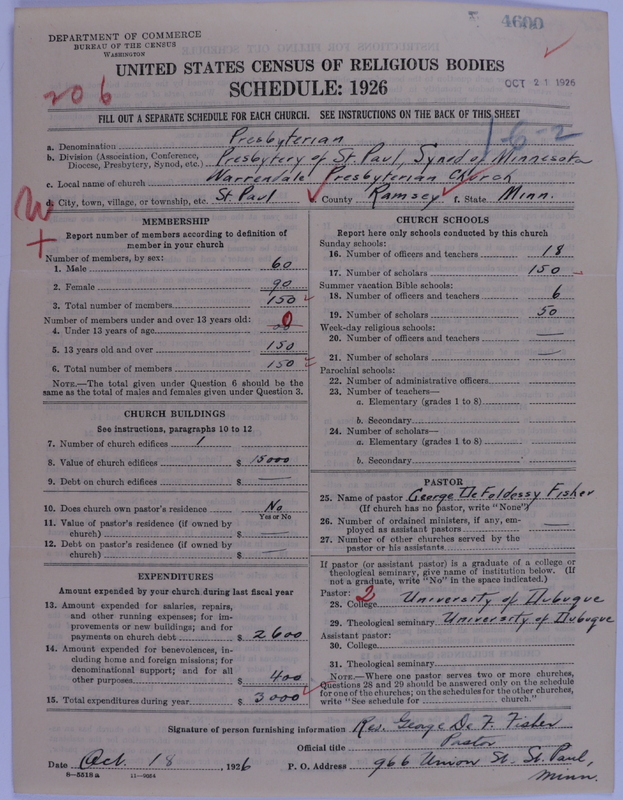 4600
DEPARTMENT OF COMMERCE
BUREAU OF THE CENSUS
WASHINGTON
UNITED STATES CENSUS OF RELIGIOUS BODIES
SCHEDULE: 1926
OCT 21 1926
206
FILL OUT A SEPARATE SCHEDULE FOR EACH CHURCH. SEE INSTRUCTIONS ON THE BACK OF THIS SHEET
1-6-2
a. Denomination Presbyterian
b. Division (Association, Conference, Diocese, Presbytery, Synod, etc.) Presbytery of St. Paul, Synod of Minnesota
c. Local name of church Warrendale Presbyterian Church
d. City, town, village, or township, etc. St. Paul e. County Ramsey f. State Minn.
MEMBERSHIP
Report number of members according to definition of
member in your church
Number of members, by sex:
1. Male 60
2. Female 90
3. Total number of members 150
Number of members under and over 13 years old:
4. Under 13 years of age 0
5. 13 years old and over 150
6. Total number of members 150
NOTE.—The total given under Question 6 should be
same as the total of males and females given under Question 3.
CHURCH BUILDINGS
See instructions, paragraphs 10 to 12
7. Number of church edifices 1
8. Value of church edifices $ 15000
9. Debt on church edifices $ —
10. Does church own pastor's residence No
Yes or No
11. Value of pastor's residence (if owned by
church) $ —
12. Debt on pastor's residence (if owned by
church) $ —
EXPENDITURES
Amount expended by your church during last fiscal year
13. Amount expended for salaries, repairs,
and other running expenses; for im-
provements or new buildings; and for
payments on church debt $ 2600
14. Amount expended for benevolences, in-
cluding home and foreign missions; for
denominational support; and for all
other purposes $ 400
15. Total expenditures during year $ 3000
CHURCH SCHOOLS
Report here only schools conducted by this church
Sunday schools:
16. Number of officers and teachers 18
17. Number of scholars 150
Summer vacation Bible schools:
18. Number of officers and teachers 6
19. Number of scholars 50
Week-day religious schools:
20. Number of officers and teachers —
21. Number of scholars —
Parochial schools:
22. Number of administrative officers
23. Number of teachers—
a. Elementary (grades 1 to 8)
b. Secondary
24. Number of scholars—
a. Elementary (grades 1 to 8)
b. Secondary
PASTOR
25. Name of pastor George De Foldessy Fisher
(If church has no pastor, write "None")
26. Number of ordained ministers, if any, em-
ployed as assistant pastors —
27. Number of other churches served by the
pastor or his assistants
If pastor (or assistant pastor) is a graduate of a college or
theological seminary, give name of institution below. (If
not a graduate, write "No" in the space indicated.)
Pastor: 2
28. College University of Dubuque
29. Theological seminary University of Dubuque
Assistant pastor:
30. College
31. Theological seminary
NOTE.—Where one pastor serves two or more churches,
Questions 28 and 29 should be answered only on the schedule
for one of the churches; on the schedules for the other churches,
write "See schedule for church."
Signature of person furnishing information Rev. George De F. Fisher
Official title Pastor
Date Oct. 18, 1926 P. O. Address 966 Union St. St. Paul,
Minn.
8—5518a 11—9264